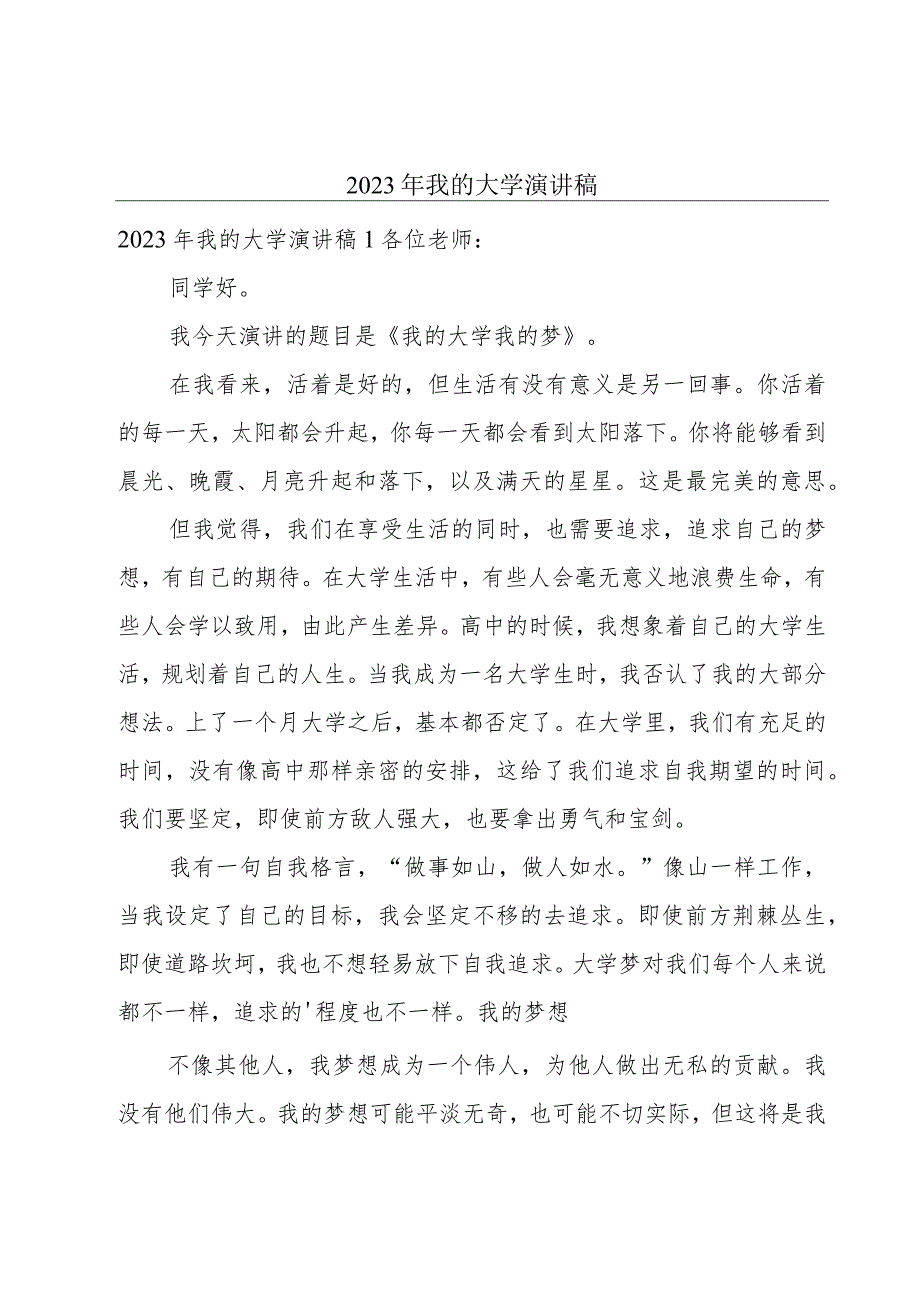 2023年我的大学演讲稿
2023年我的大学演讲稿1各位老师：
同学好。
我今天演讲的题目是《我的大学我的梦》。
在我看来，活着是好的，但生活有没有意义是另一回事。你活着
的每一天，太阳都会升起，你每一天都会看到太阳落下。你将能够看到
晨光、晚霞、月亮升起和落下，以及满天的星星。这是最完美的意思。
但我觉得，我们在享受生活的同时，也需要追求，追求自己的梦
想，有自己的期待。在大学生活中，有些人会毫无意义地浪费生命，有
些人会学以致用，由此产生差异。高中的时候，我想象着自己的大学生
活，规划着自己的人生。当我成为一名大学生时，我否认了我的大部分
想法。上了一个月大学之后，基本都否定了。在大学里，我们有充足的
时间，没有像高中那样亲密的安排，这给了我们追求自我期望的时间。
我们要坚定，即使前方敌人强大，也要拿出勇气和宝剑。
我有一句自我格言，“做事如山，做人如水。”像山一样工作，
当我设定了自己的目标，我会坚定不移的去追求。即使前方荆棘丛生，
即使道路坎坷，我也不想轻易放下自我追求。大学梦对我们每个人来说
都不一样，追求的'程度也不一样。我的梦想
不像其他人，我梦想成为一个伟人，为他人做出无私的贡献。我
没有他们伟大。我的梦想可能平淡无奇，也可能不切实际，但这将是我